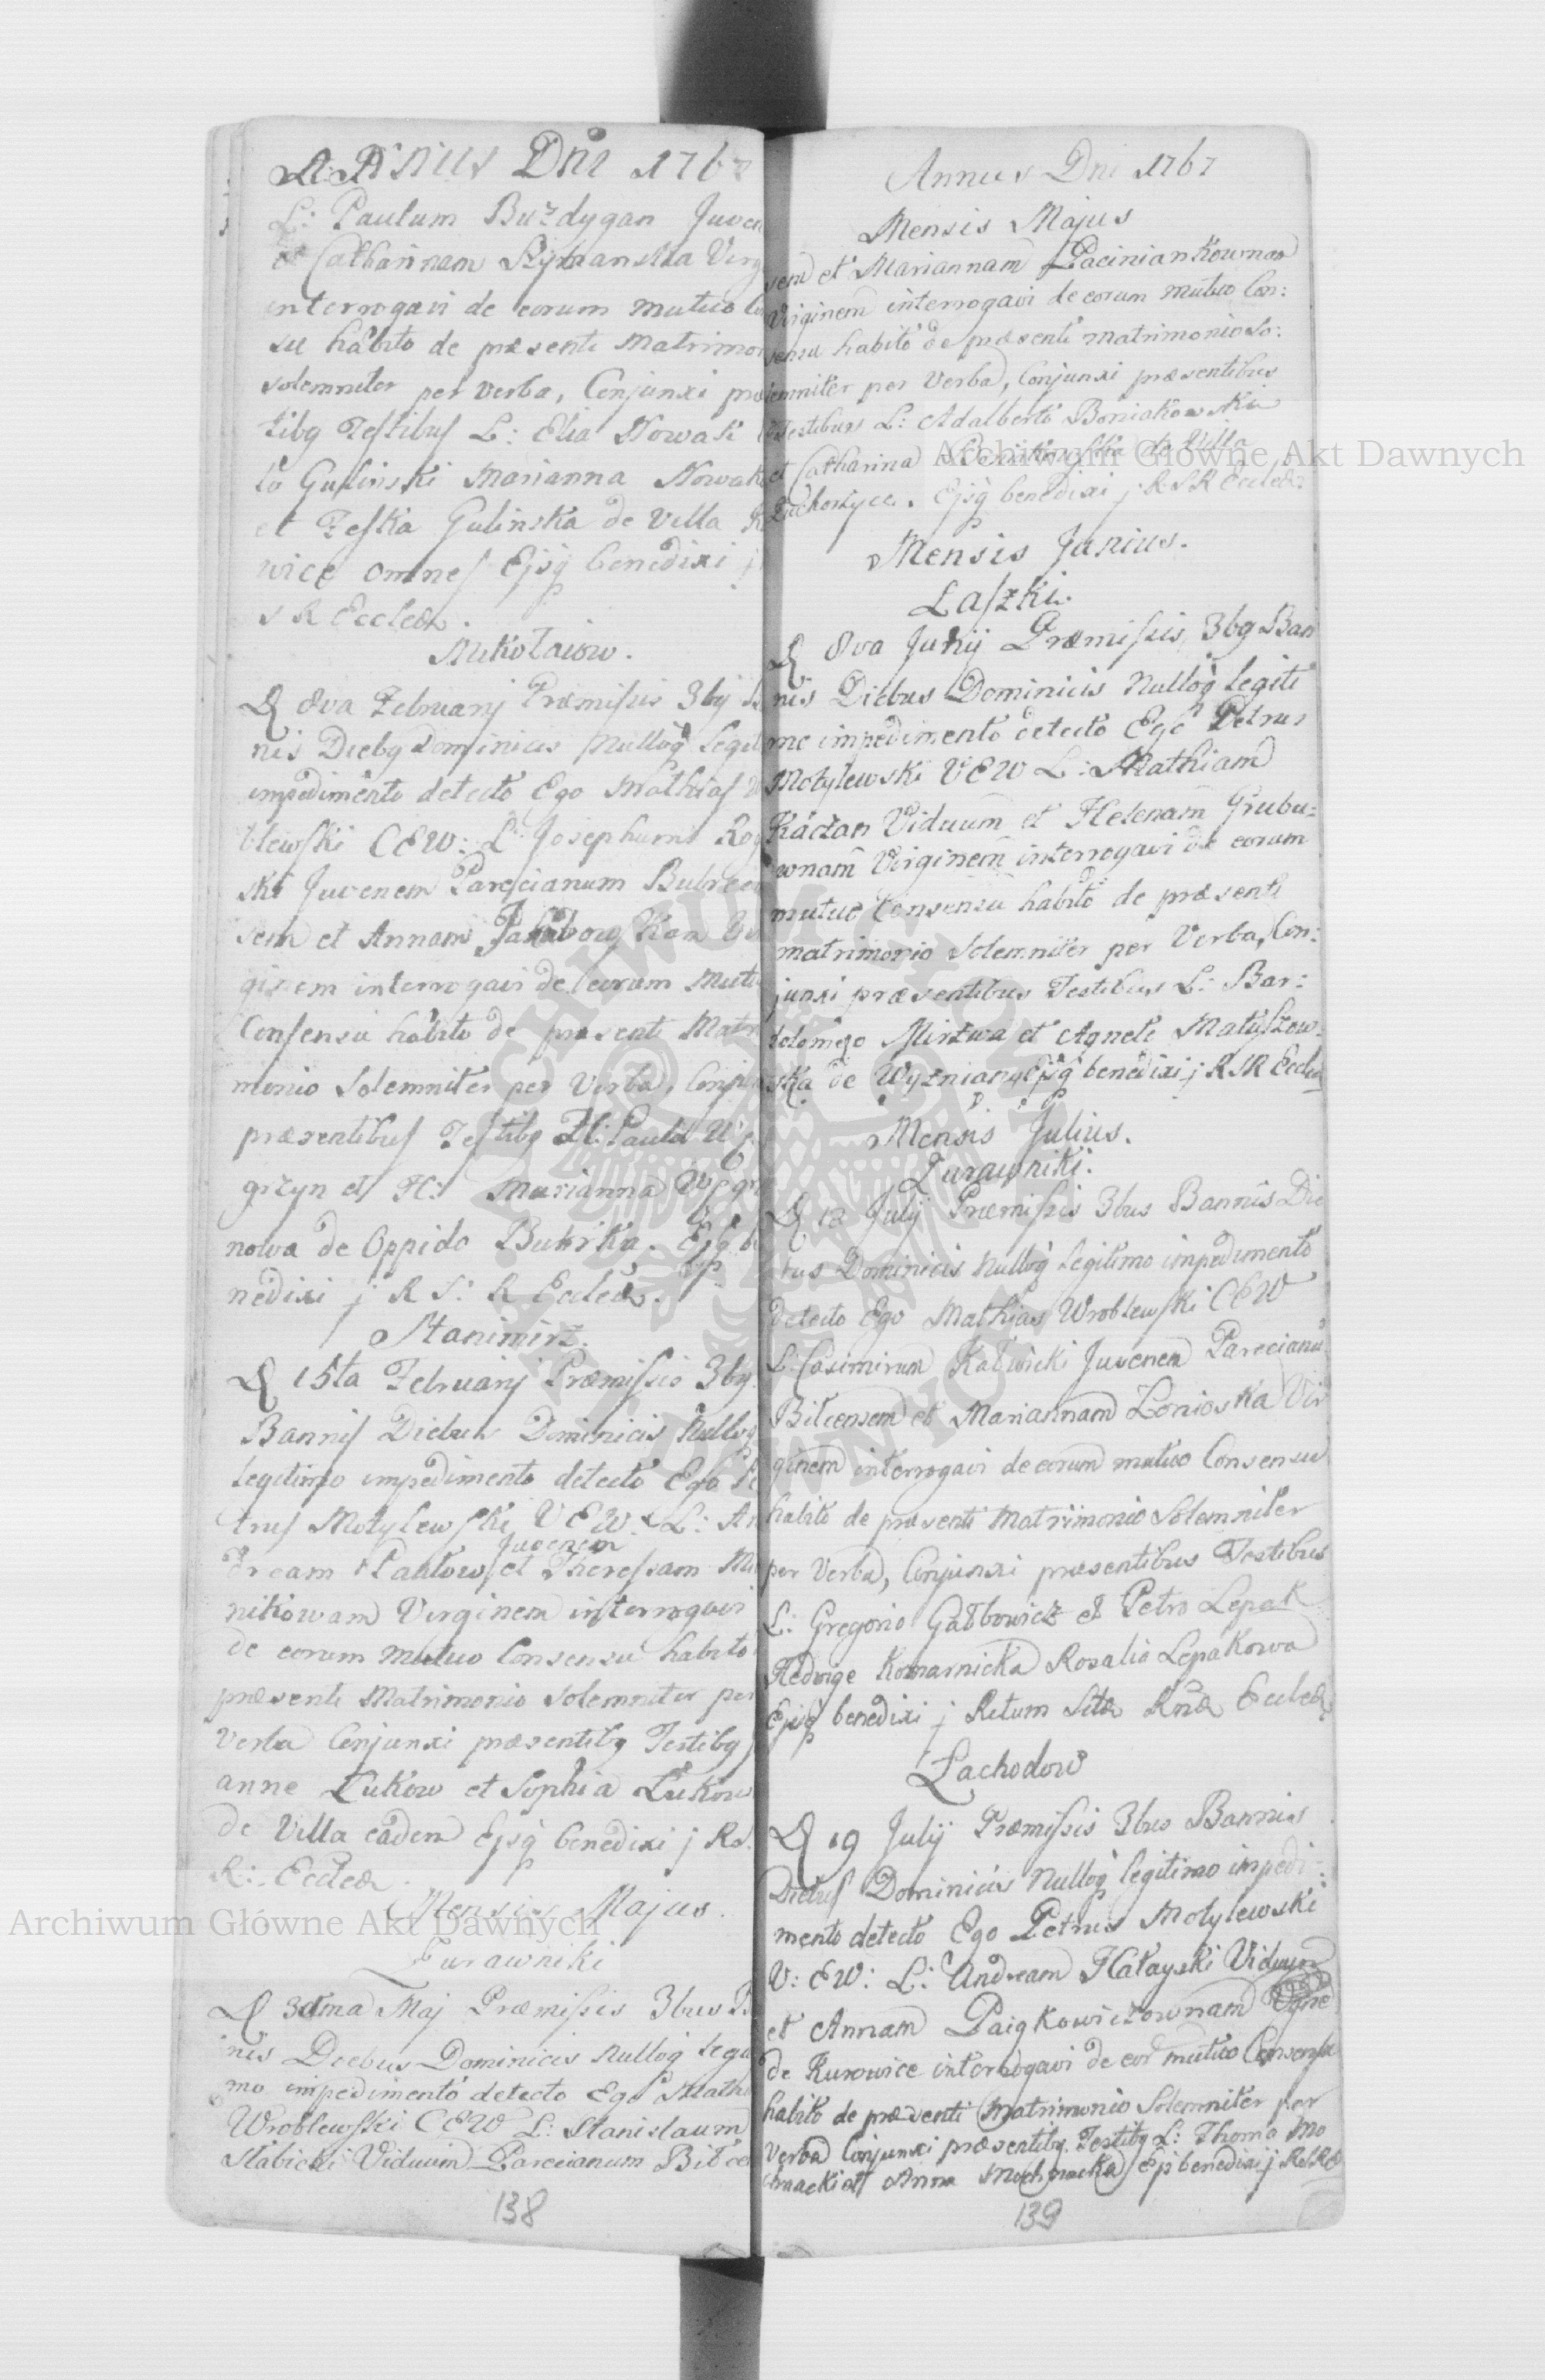 Annus Dni 1767
L: Paulum Buzdygan Juve
et Catharinam Szymanska Virg
interrogavi de eorum mutuo Co
su habito de præsenti Matrimo
solemniter per verba, Conjunxi præ
tibg Testibus L: Elia Nowak
to Gulinski Marianna Nowak
et Feska Gulinska de Villa K
wice omnes Ejsq benedixi j
S R Eccleæ.
Mikołaiow.
D 8va Februarij Præmissis 3bg Ba
nis Diebg Dominicis Nulloq legit
impedimento detecto Ego Mathias W
blewski CEW: L: Josephum Ro
ski Juvenem Parecianum Bubrce
sem et Annam Jakubowskan Vir
ginem interrogavi de eorum Mutu
Consensu habito de præsenti Matri
monio Solemniter per Verba, Conju
præsentibus Testibg H: Paulo Wę
grzyn et H: Marianna Węgrzy
nowa de Oppido Bubrka. Ejsq be
nedixi j R S: R Eccleæ.
Stanimirz.
D 15ta Februarij Præmissis 3bg
Bannis Diebus Dominicis Nulloq
legitimo impedimento detecto Ego Pe
trus Motylewski VEW. L: An
Juvenem
dream Pantow et Theressam Mi
nikowam Virginem interrogavi
de eorum Mutuo Consensu habito
præsenti Matrimonio solemniter per
Verba Conjunxi præsentibg Testibg J
anne Łukow et Sophia Łukow
de Villa eadem Ejsq benedixi j RS.
R: Eccleæ.
Mensis Majus.
Zurawniki
D 3tma Maj Præmissis 3bus B
nis Diebus Dominicis Nulloq legit
mo impedimento detecto Ego Math
Wroblewski CEW L: Stanislaum
Słabicki Viduum Parecianum Biłce
138
Annus Dni 1767
Mensis Majus
sem et Mariannam Paciniankowna
Virginem interrogavi de eorum mutuo Con:
sensu habito de præsenti matrimonio So:
lemniter per Verba, Conjunxi præsentibus
Testibus L: Adalberto Boniakowski
et Catharina de Villa
Ejsq benedixi j R S R Eccleæ
Mensis Junius.
Laszki.
D 8va Junij Præmissis 3bg Ban
nis Diebus Dominicis Nulloq legiti
mo impedimento detecto Ego Petrus
Motylewski VEW L: Mathiam
Kaczan Viduum et Helenam Grubu=
wnam Virginem interrogavi de eorum
mutuo Consensu habito de præsenti
matrimonio Solemniter per Verba, Con:
junxi præsentibus Testibus L: Bar:
tolomeo Mirtwa et Agnete Matyszow=
ska de Wyzniany Ejsq benedixi j R S R Eccleæ
Mensis Julius.
Zurawniki.
D 12 Julij Præmissis 3bus Bannis Die
bus Dominicis Nulloq legitimo impedimento
detecto Ego Mathias Wroblewski CEW
L: Casimirum Katwicki Juvenem Parecianu
Bilcensem et Mariannam Lonioska Vir
ginem interrogavi de eorum mutuo Consensu
habito de præsenti Matrimonio Solemniter
per Verba, Conjunxi præsentibus Testibus
L: Gregorio Gałbowicz et Petro Lepak
Hedwige Komarnicka Rosalia Lepakowa
Ejsq benedixi j Ritum Sctæ Rnæ Eccleæ
Lachodow
D 19 Julij Præmissis 3bus Bannis
Diebus Dominicis Nulloq legitimo impedi:
mento detecto Ego Petrus Motylewski
V: EW: L: Andream Hałayski Viduum
et Annam Paigkowiczownam Vgne
de Kurowice interrogavi de eor mutuo Consensu
habito de præsenti Matrimonio Solemniter per
Verba Conjunxi præsentibg Testibg L: Thoma Mo
chnacki et Anna Mochnacka Ej benedixi j RSRE
139
Archiwum Główne Akt Dawnych
Archiwum Główne Akt Dawnych